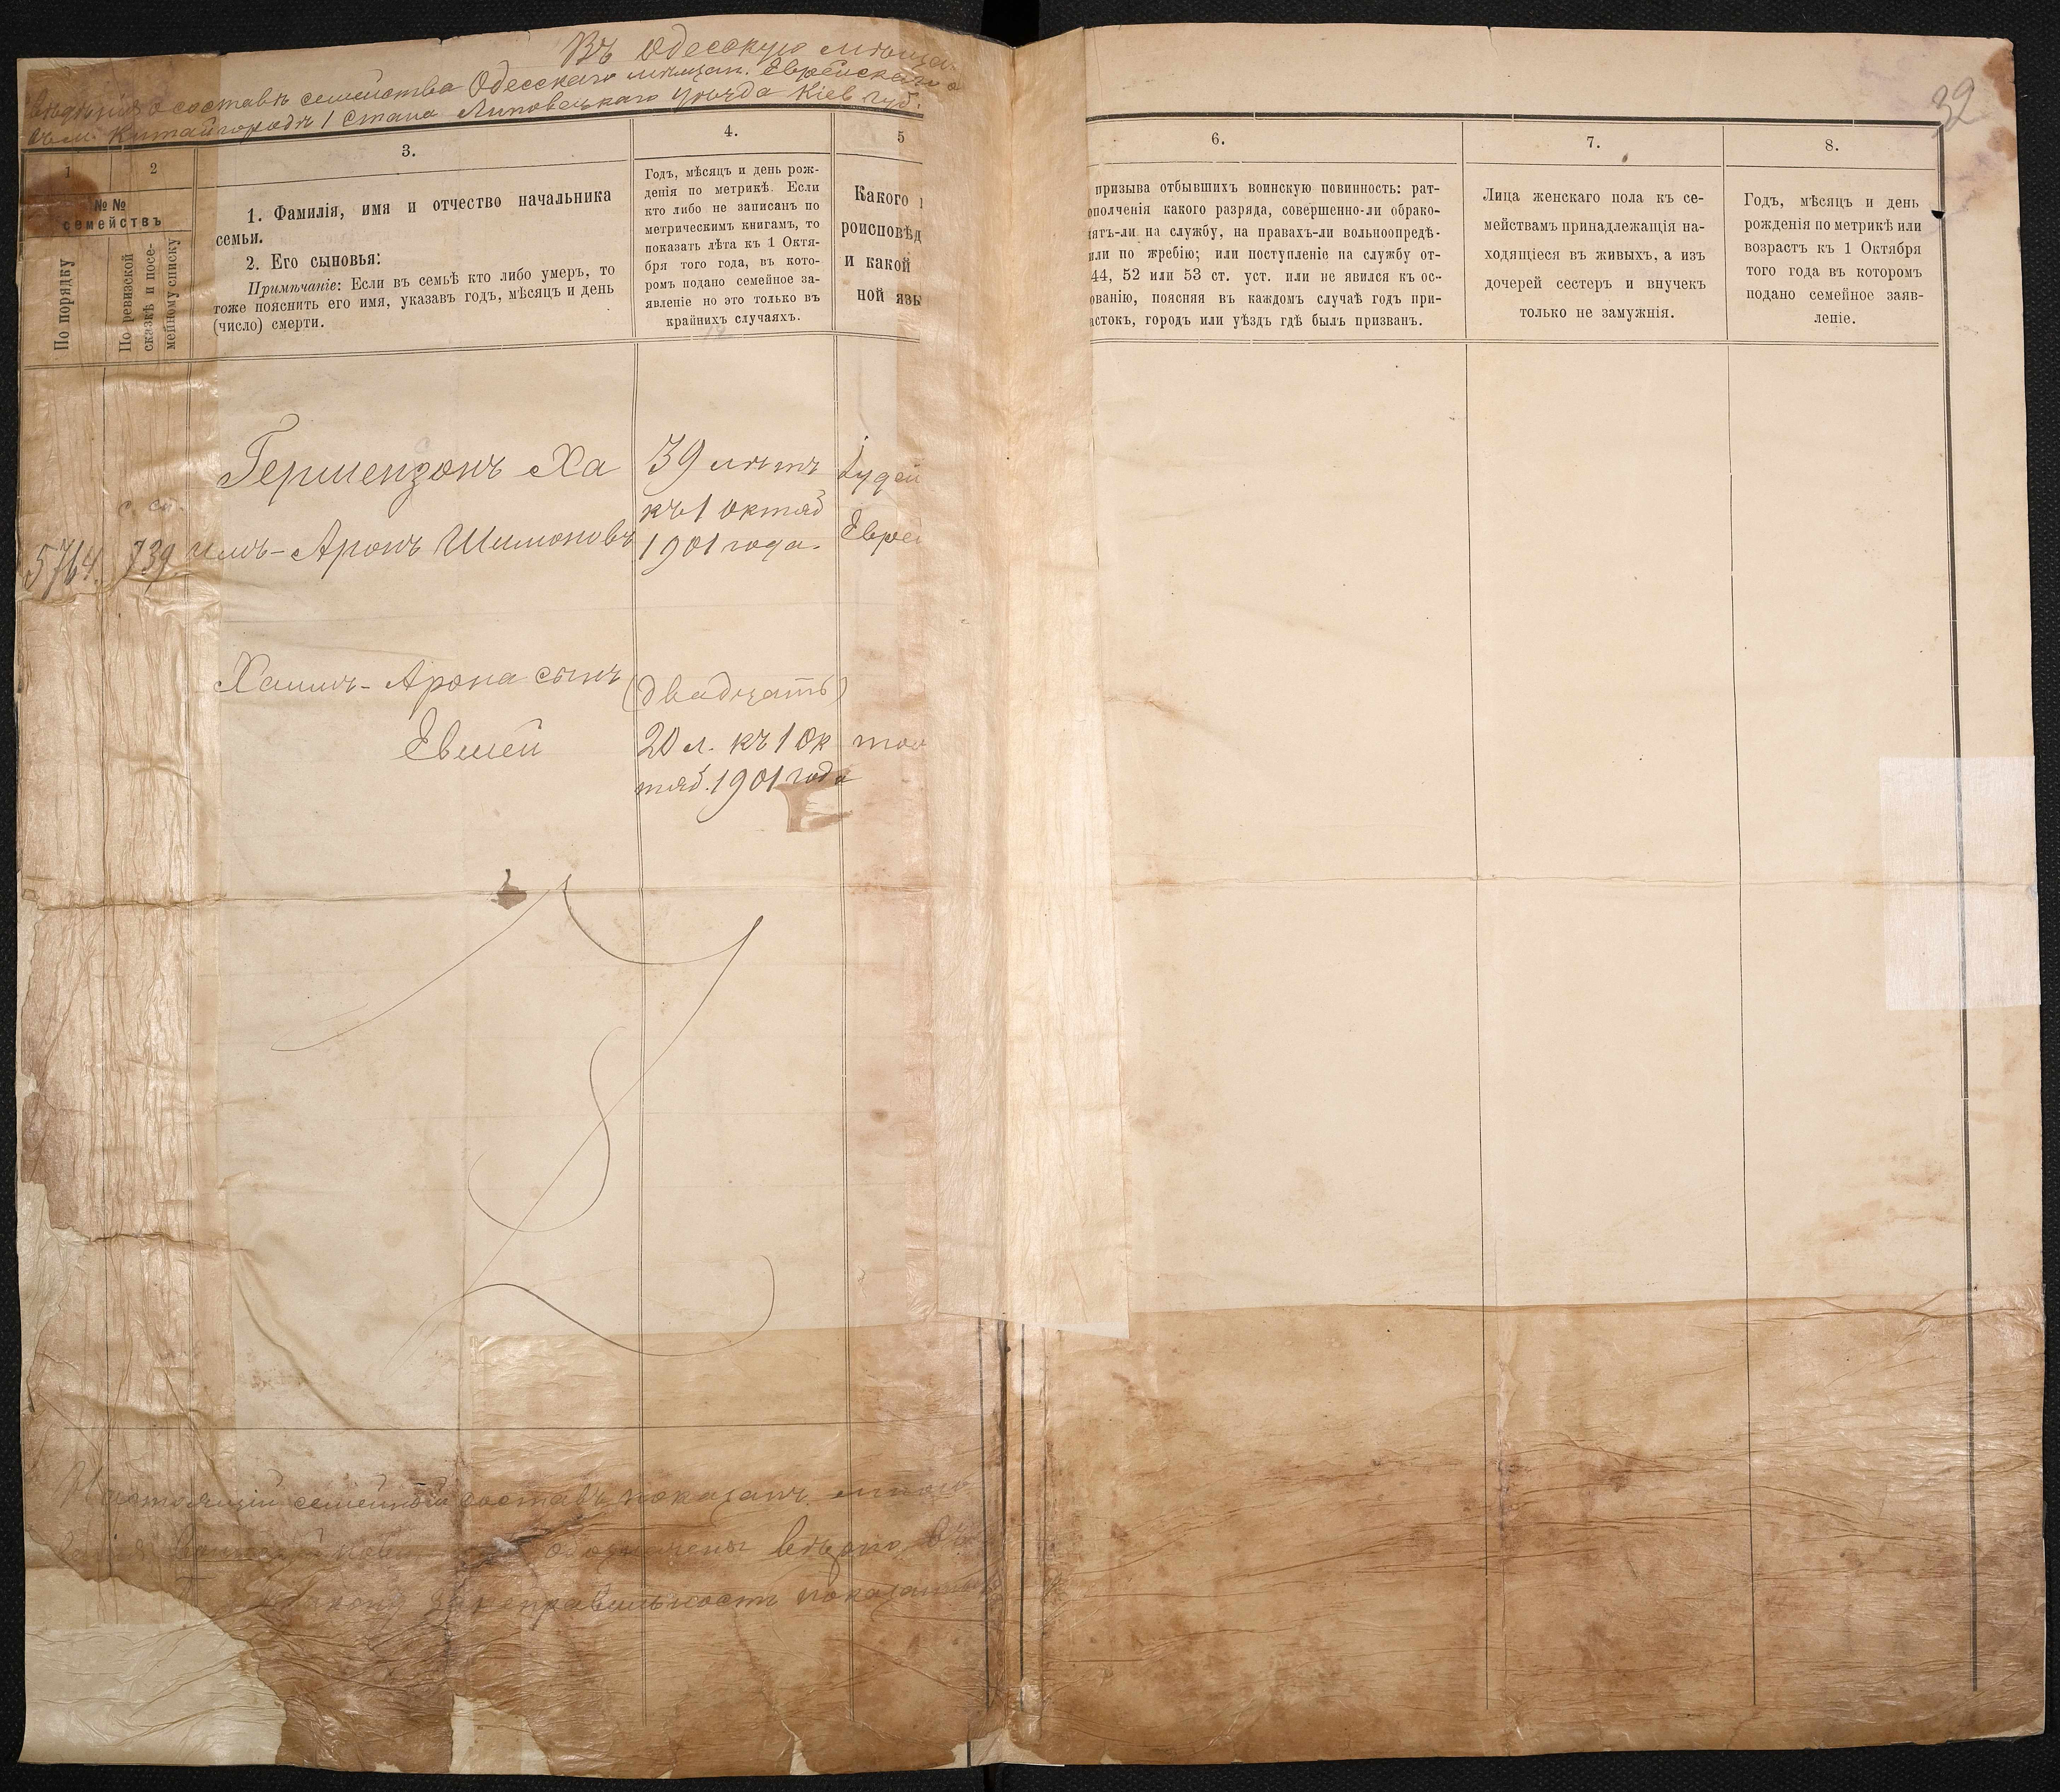 Въ Одесскую мѣща
о составѣ семейства Одесскаго мѣщан. Еврейскаго о
въ м. Китайгородѣ 1 Стана Липовецкаго Уѣзда Кіев. Губ.
32
1
2
3.
4.
5
6.
7.
8.
№№
семействъ
По порядку
По ревизской
сказкѣ и посе-
мейному списку
1. Фамилія, имя и отчество начальника
семьи.
2. Его сыновья:
Примѣчаніе: Если въ семьѣ кто либо умеръ, то
тоже пояснить его имя, указавъ годъ, мѣсяцъ и день
(число) смерти.
Годъ, мѣсяцъ и день рож-
денія по метрикѣ. Если
кто либо не записанъ по
метрическимъ книгамъ, то
показать лѣта къ 1 Октя-
бря того года, въ кото-
ромъ подано семейное за-
явленіе но это только въ
крайнихъ случаяхъ.
Какого
роисповѣд
и какой
ной язы
призыва отбывшихъ воинскую повинность: рат-
ополченія какого разряда, совершенно-ли обрако-
ятъ-ли на службу, на правахъ-ли вольноопредѣ-
или по жребію; или поступленіе на службу от-
44, 52 или 53 ст. уст. или не явился къ ос-
ованію, поясняя въ каждомъ случаѣ годъ при-
астокъ, городъ или уѣздъ гдѣ былъ призванъ.
Лица женскаго пола къ се-
мействамъ принадлежащія на-
ходящіеся въ живыхъ, а изъ
дочерей сестеръ и внучекъ
только не замужнія.
Годъ, мѣсяцъ и день
рожденія по метрикѣ или
возрастъ къ 1 Октября
того года въ которомъ
подано семейное заяв-
леніе.
Гершензонъ Ха
39 лѣтъ
Іудей
къ 1 октяб
с. сп.
5764. 739 имъ-Аронъ Шимоновъ
1901 года.
Еврей
Хаимъ-Арона сынъ
(двадцать)
Евсей
20 л. къ 1 Ок
тоо
тяб. 1901 года
Настоящій семейный составъ показанъ мною
обозначены вѣрно. Въ
закону за неправильность показанія